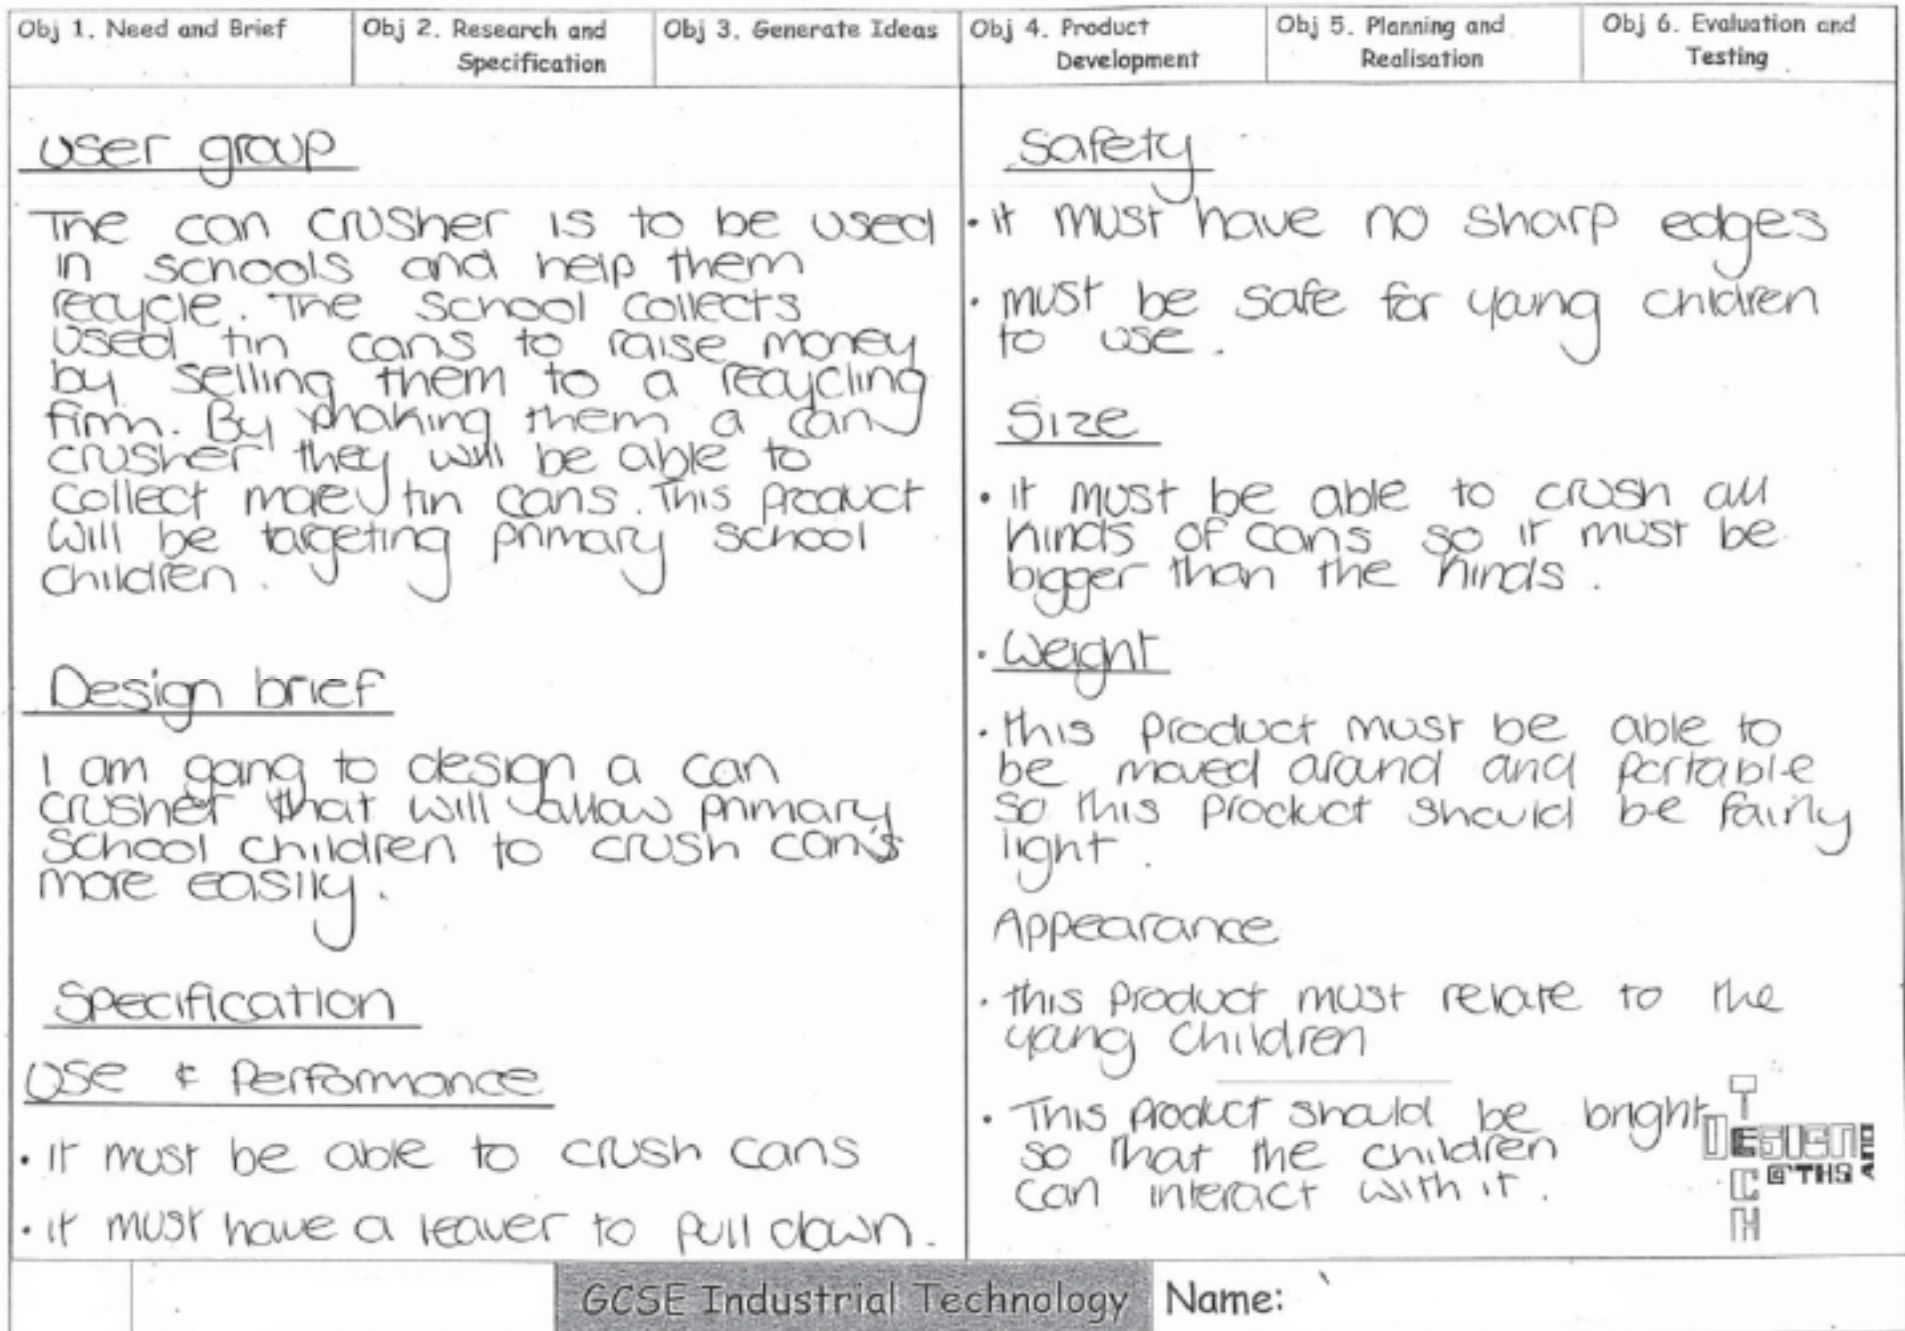 Obj 1. Need and Brief
Obj 2. Research and
Specification
Obj 3. Generate Ideas
Obj 4. Product
Development
Obj 5. Planning and
Realisation
Obj 6. Evaluation and
Testing
User group
The can crusher is to be used
in schools and help them
recycle. The school collects
used tin cans to raise money
by selling them to a recycling
firm. By making them a can
crusher they will be able to
collect more tin cans. This product
will be targeting primary school
children.
Design brief
I am going to design a can
crusher that will allow primary
school children to crush can's
more easily.
Specification
Use & Performance
• it must be able to crush cans
• it must have a leaver to pull down.
Safety
• it must have no sharp edges
• must be safe for young children
to use.
Size
• it must be able to crush all
kinds of cans so it must be
bigger than the kinds.
• Weight
• this product must be able to
be moved around and portable
so this product should be fairly
light.
Appearance
• this product must relate to the
young children
• This product should be bright
so that the children
can interact with it.
DESIGN AND
TECH
@THS
GCSE Industrial Technology
Name: